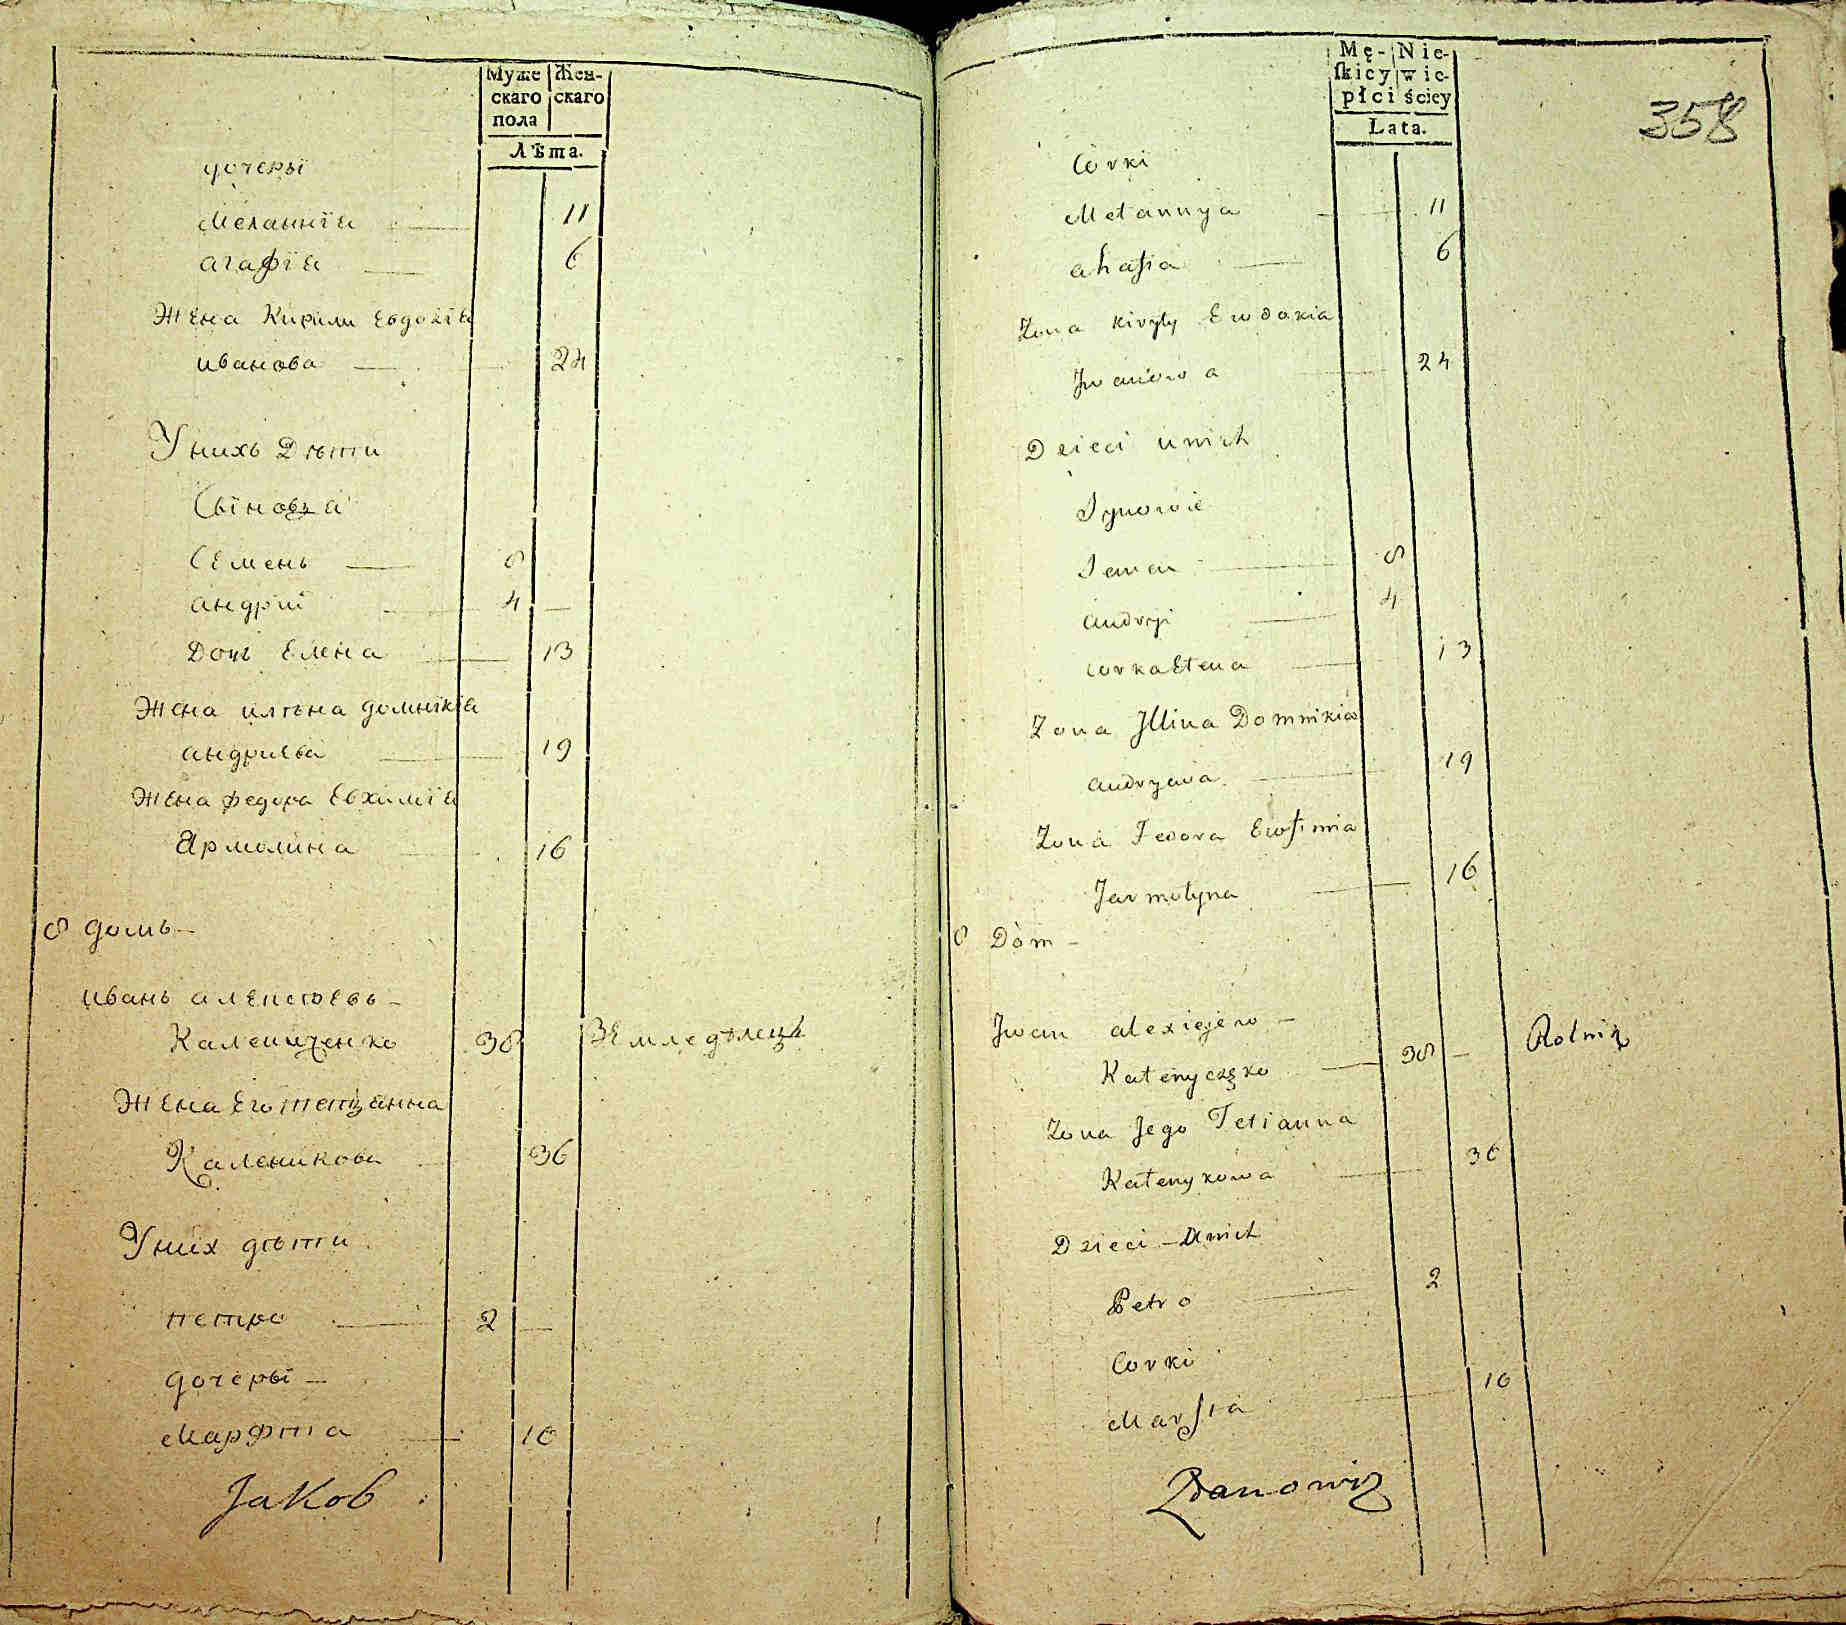 Муже Жен-
скаго скаго
пола
Лѣта.
дочеры
Меланнія 11
агафія 6
Жена Кирили Евдокія
иванова 24
У нихъ Дѣти
Сыновья
Семенъ 8
андрій 4
Дочь Елена 13
Жена илѣна домникія
андриева 19
Жена федора Евхимія
Ярмолина 16
8 домъ -
иванъ алексіоевъ -
Калениченко 38 Земледѣлецъ
Жена Его тетянна
Каленикова 36
У них дѣти
петро 2
дочеры -
Марфта 10
Jakob
Mę- Nie-
ſkiey wie-
płci ściey
Lata.
358
Corki
Mełannya 11
ahafia 6
Zona Kiryły Ewdokia
Jwanowa 24
Dzieci unich
Synowie
Semen 8
Andryi 4
corka Ełena 13
Zona Jllina Domnikia
Andryewa 19
Zona Fedora Ewfimia
Jarmołyna 16
8 Dom -
Jwan alexiejew -
Kałenyczęko 38 Rolnik
Zona Jego Tetianna
Kałenykowa 36
Dzieci - Unich
Petro 2
Corki
Marfta 10
Zdanowicz